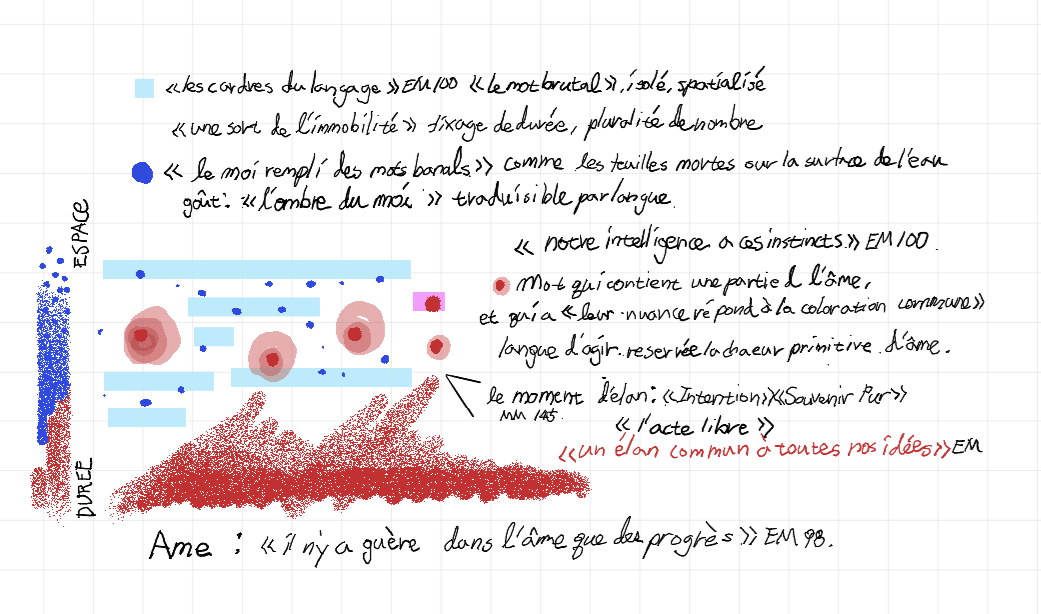 «les cadres du langage» EM 100 «le mot brutal», isolé, spatialisé
«une sort de l'immobilité» fixage de durée, pluralité de nombre
« le moi rempli des mots banals » comme les feuilles mortes sur la surface de l'eau
goût: «l'ombre du moi » traduisible par langue.
ESPACE
« notre intelligence a ces instincts » EM 100.
Mot qui contient une partie d l'âme,
et qui a «leur nuance répond à la coloration commune»
langue d'agir. reservée la chaeur primitive d'âme.
le moment d'élan: «Intention» «Souvenir Pur»
MM 145.
« l'acte libre »
«un élan commun à toutes nos idées» EM
DURÉE
Ame : « il n'y a guère dans l'âme que des progrès » EM 98.